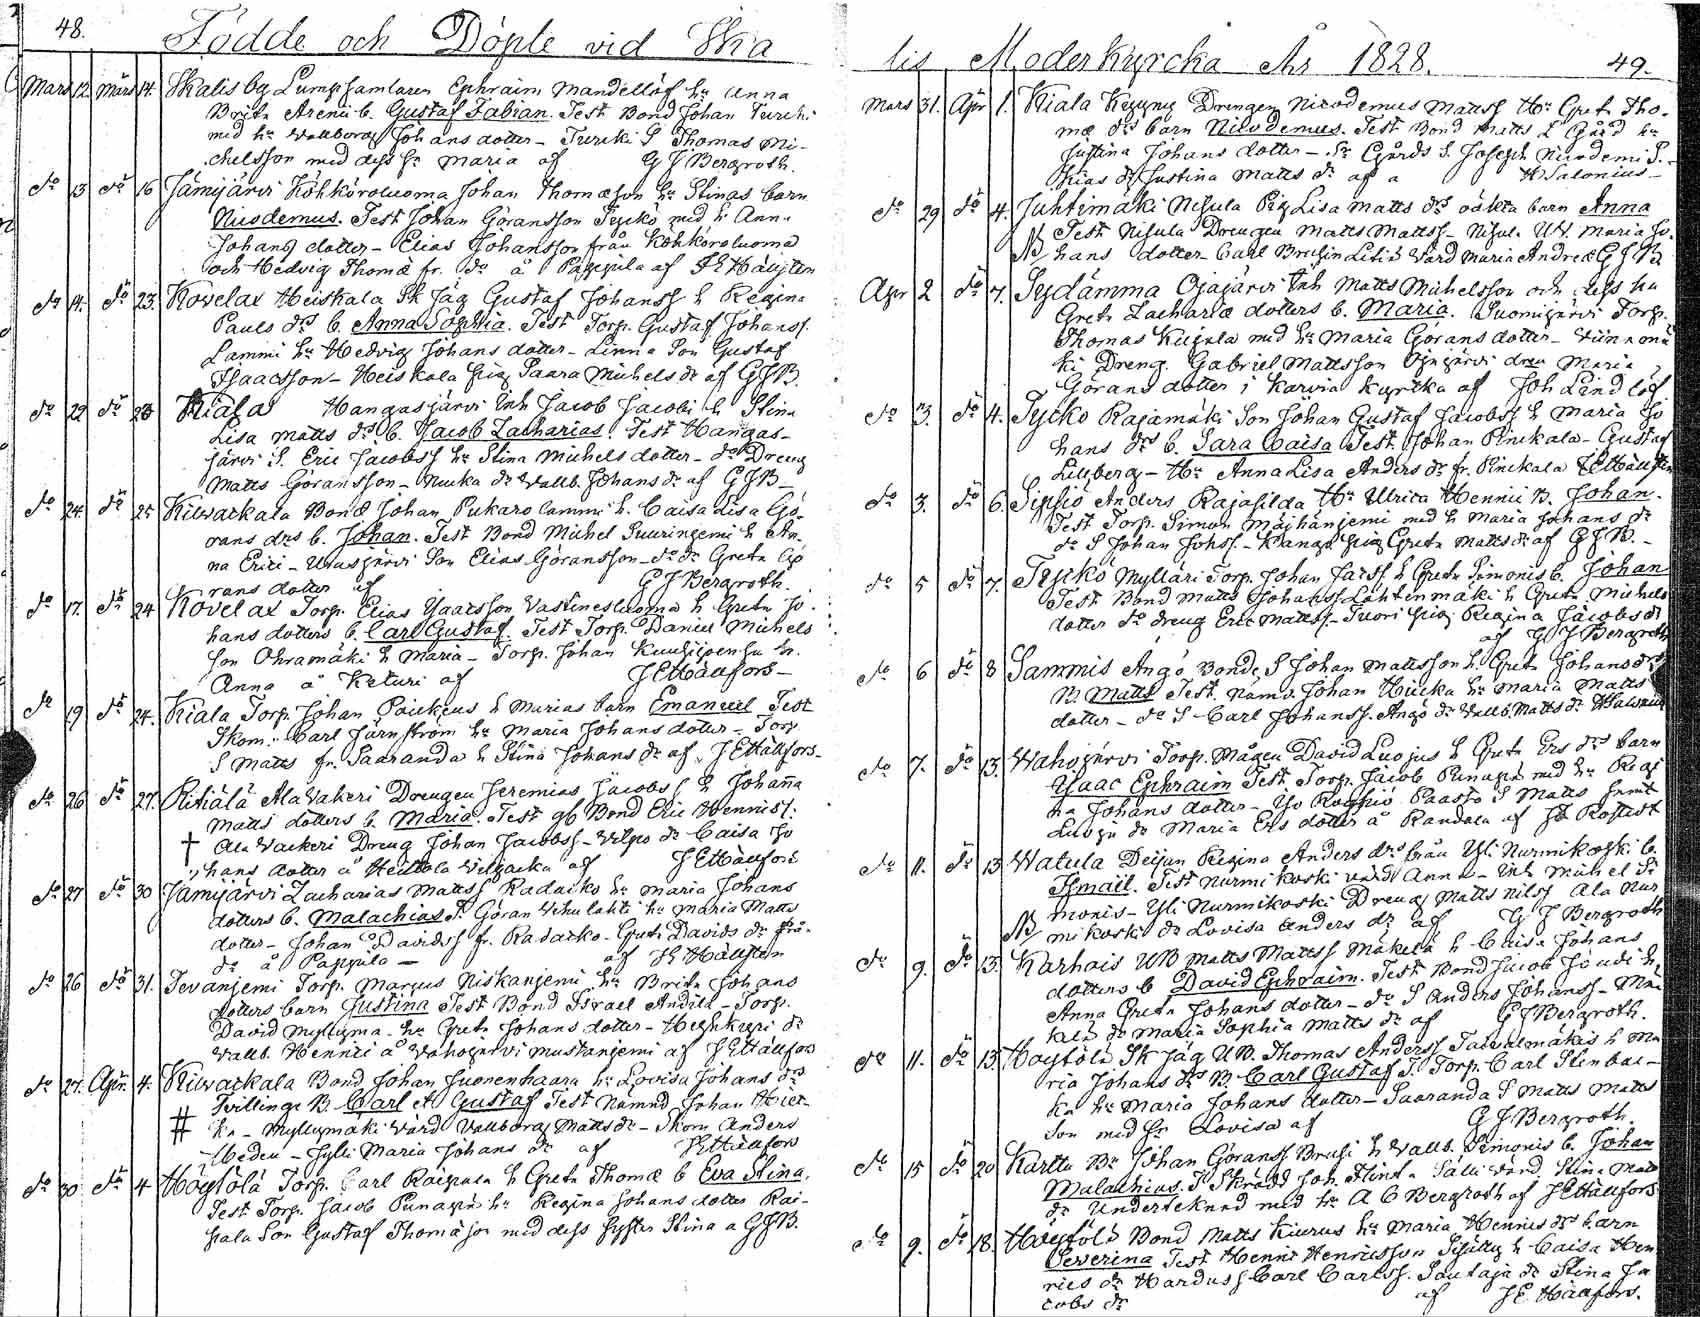 48.
Födde och Döpte vid Ska
Mars 12. mars 14. Skalis by Lumpsamlaren Ephraim Mandellöf hu Anna
Brita Arenii b. Gustaf Fabian. Test Bond Johan Tureki
med hu Wallborg Johans dotter - Tureki S Thomas Mi-
chelsson med dess Sr Maria af G J Bergroth.
do 13 do 16 Jämijärvi Köhköroluoma Johan Thomæson hu Stinas barn
Nicodemus. Test Johan Göransson Jyckö med h Anna
Johans dotter - Elias Johansson från Köhköroluoma
och Hedvig Thomæ fr. do å Pappila af
do 14. do 23. Kovelax Heiskala Sk Jäg Gustaf Johanss h Regina
Pauls drs b. Anna Sophia. Test Torp. Gustaf Johanss.
Lammi hu Hedvig Johans dotter - Linna Son Gustaf
Isaacsson - Heiskala pig Saara Michels dr af GJB.
do 22 do 23 Kiala Hangasjärvi Inh Jacob Jacobi h Stina
Lisa Matts drs b. Jacob Zacharias. Test Hangas-
järvi S. Eric Jacobss hu Stina Michels dotter - do Dreng
Matts Göransson - do Wallb. Johans dr af GJB -
do 24. do 25 Kilvackala Bond Johan Pukaro lammi h. Caisa Lisa Gö-
rans drs b. Johan. Test Bond Michel Suuriniemi h An-
na Erici - Son Elias Göransson - do dr Greta Gö
rans dotter af G J Bergroth.
do 17. do 24 Kovelax Torp. Elias Isaacsson Vastinesluoma h Greta Jo-
hans dotters b. Carl Gustaf. Test Torp. Daniel Michels
son Ohramäki h Maria - Torp. Johan hu
Anna å Keturi af J E Hällfors -
do 19 do 24. Kiala Torp. Johan h Marias barn Emanuel Test
Skom. Carl Järnström hu Maria Johans dotter - Torp
S Matts fr. Saaranda h Stina Johans dr af J E Hällfors -
do 26 do 27. Ritiälä Ala Vakeri Drengen Jeremias Jacobss h Johanna
Matts dotters b. Maria. Test gb Bond Eric Hennis.
† Ala Vackeri Dreng Johan Jacobss - Vilpo dr Caisa Jo
hans dotter å af J E Hällfors
do 27 do 30 Jämijärvi Zacharias Matts Radacko hu Maria Johans
dotters b. Malachias T. Göran Vihulahti hu Maria Matts
dotter - Johan Davidss fr. Radacko - Greta Davids dr frå.
do å Pappila - af
do 26 do 31. Jevaniemi Torp. Marcus Niskaniemi hu Brita Johans
dotters barn Justina Test Bond Israel Andila - Torp.
David Myllyma - hu Greta Johans dotter - do
Wallb. Hennici å Vahojärvi Mustaniemi af J E Hällfors
do 27. Apr. 4. Kilvackala Bond Johan Juonenhaara hu Lovisa Johans drs
# Tvillinge B. Carl et Gustaf Test Nämnd Johan Hiec-
ka - Myllymäki värd Vallborg Matts dr - Skom Anders
Heden - Jyli Maria Johans dr af J E Hällfors
do 30. do 4 Höytölä Torp. Carl Räipala h Greta Thomæ b Eva Stina.
Test Torp. Jacob Punapä hu Regina Johans dotter Räi-
pala Son Gustaf Thomæson med dess syster Stina a GJB.
lis Moderkyrcka År 1828.
49.
Mars 31. Apr 1. Kiala Keyyny Drengen Nicodemus Mattss Hu Greta Tho-
mæ drs barn Nicodemus. Test Bond Matts L Gård hu
Justina Johans dotter - Gårds S. Joseph Nicodemi S.
dr Justina Matts dr af a H Salonius -
do 29 do 4. Juhtimäki Nisula Pig Lisa Matts drs oäkta barn Anna
NB Test Nisula Drengen Matts Mattss - Maria Jo.
hans dotter - Carl värd Maria Andreæ GJB
Apr 2 do 7. Sydämma Ojajärvi Inh Matts Michelsson och dess hu
Greta Zachariæ dotters b. Maria. Suomijärvi Torp.
Thomas Kujala med hu Maria Görans dotter -
ki Dreng. Gabriel Mattsson Maria
Görans dotter i Karvia Kyrcka af Joh Lindlöf
do 3. do 4. Jyckö Rajamäki Son Johan Gustaf Jacobss h Maria Jo
hans drs b. Sara Caisa Test. Johan Pinckala - Gustaf
Lillberg - Hu Anna Lisa Anders dr fr. Pinckala J E Hällsten
do 3. do 6. Sipsiö Anders Rajasilda Hu Ulrica Hennii B. Johan.
Test Torp. Simon med h Maria Johans dr
do S Johan Johss. - Kangas pig Greta Matts dr af GJB. -
do 5 do 7. Jyckö Mylläri Torp. Johan h Greta Simonis b. Johan
Test Bond Matts Johanss Lähtenmäki h Greta Michels
dotter do dreng Eric Mattss. - Tuori pig Regina Jacobs dr
af G J Bergroth
do 6 do 8 Sammis Angö Bonde S Johan Mattsson h. Greta Johans drs
B. Matts Test. Nämd. Johan Hiecka hu Maria Matts
dotter - do S Carl Johanss. Angö dr Wallb. Matts dr H Salonius
do 7. do 13. Wahojärvi Torp. Mågen David Luojus h Greta Ers drs barn
Isaac Ephraim Test Torp. Jacob Punapä med hu Regi
na Johans dotter - Paasto S Matts
dr Maria Ers dotter å Randala af
do 11. do 13 Watula Deijan Regina Anders drs från Yli Nurmikoski b.
Ismail. Test Nurmikoski värd Anna - Inh Michel Si
NB monis - Yli Nurmikoski Dreng Matts Nilss Ala Nur
mikoski dr Lovisa Anders dr af G J Bergroth
do 9. do 13. Karhais UB Matts Mattss Mäkelä h Caisa Johans
dotters b David Ephraim. Test Bond Jacob Joudi h
Anna Greta Johans dotter - do S Anders Johanss - Mä-
kelä dr Maria Sophia Matts dr af G J Bergroth.
do 11. do 13. Höytölä Sk Jäg UB. Thomas Anderss h Ma
ria Johans drs B. Carl Gustaf T. Torp. Carl Stenbac-
ka hu Maria Johans dotter - Saaranda S Matts Matts
son med Sr Lovisa af G J Bergroth.
do 15 do 20 Karttu Br Johan Göranss h Wallb. Simonis b. Johan
Malachias. T Skrädd Joh. Flinta värd Stina Matts
dr Undertecknad med hu A C Bergroth af J E Hällfors
do 9. do 18. Höytölä Bond Matts Kiurus hu Maria Hennici drs barn
Severina Test Henric Henricsson h Caisa Hen
rics dr Carl Carlss. Soutaja dr Stina Ja
cobs dr af J E Hällfors.